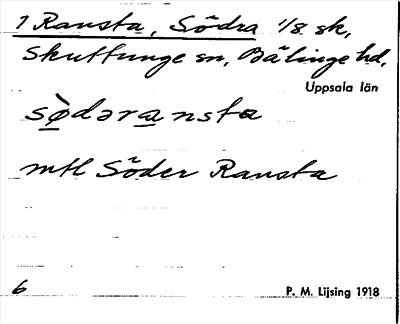 1 Ransta, Södra 1/8 sk,
Skuttunge sn, Bälinge hd,
Uppsala län
sø̀dəra nsta
mtl Söder Ransta
6 P. M. Lijsing 1918